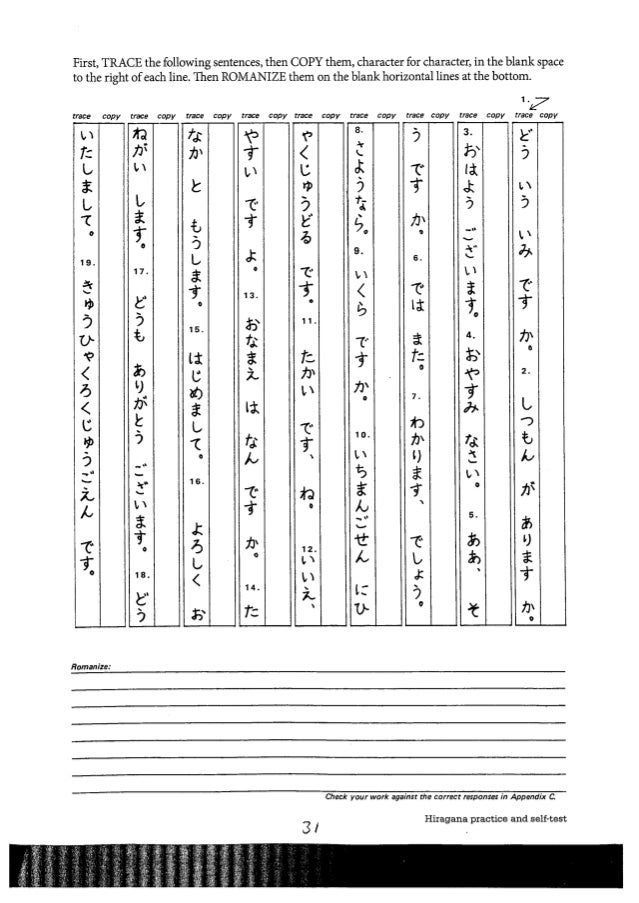 First, TRACE the following sentences, then COPY them, character for character, in the blank space
to the right of each line. Then ROMANIZE them on the blank horizontal lines at the bottom.
1.
trace copy trace copy trace copy trace copy trace copy trace copy trace copy trace copy trace copy
どう いう いみ です か。 2. しつもん が あります か。
3. おはよう ございます。 4. おやすみ なさい。 5. ああ、 そ
う です か。 6. では また。 7. わかります、 でしょう。
8. さようなら。 9. いくら です か。 10. いちまんごせん にひ
ゃくじゅうどる です。 11. たかい です、 ね。 12. いいえ、
やすい です よ。 13. おなまえ は なん です か。 14. た
なか と もうします。 15. はじめまして。 16. よろしく お
ねがい します。 17. どうも ありがとう ございます。 18. どう
いたしまして。 19. きゅうひゃくろくじゅうごえん です。
Romanize:
Check your work against the correct responses in Appendix C.
31
Hiragana practice and self-test